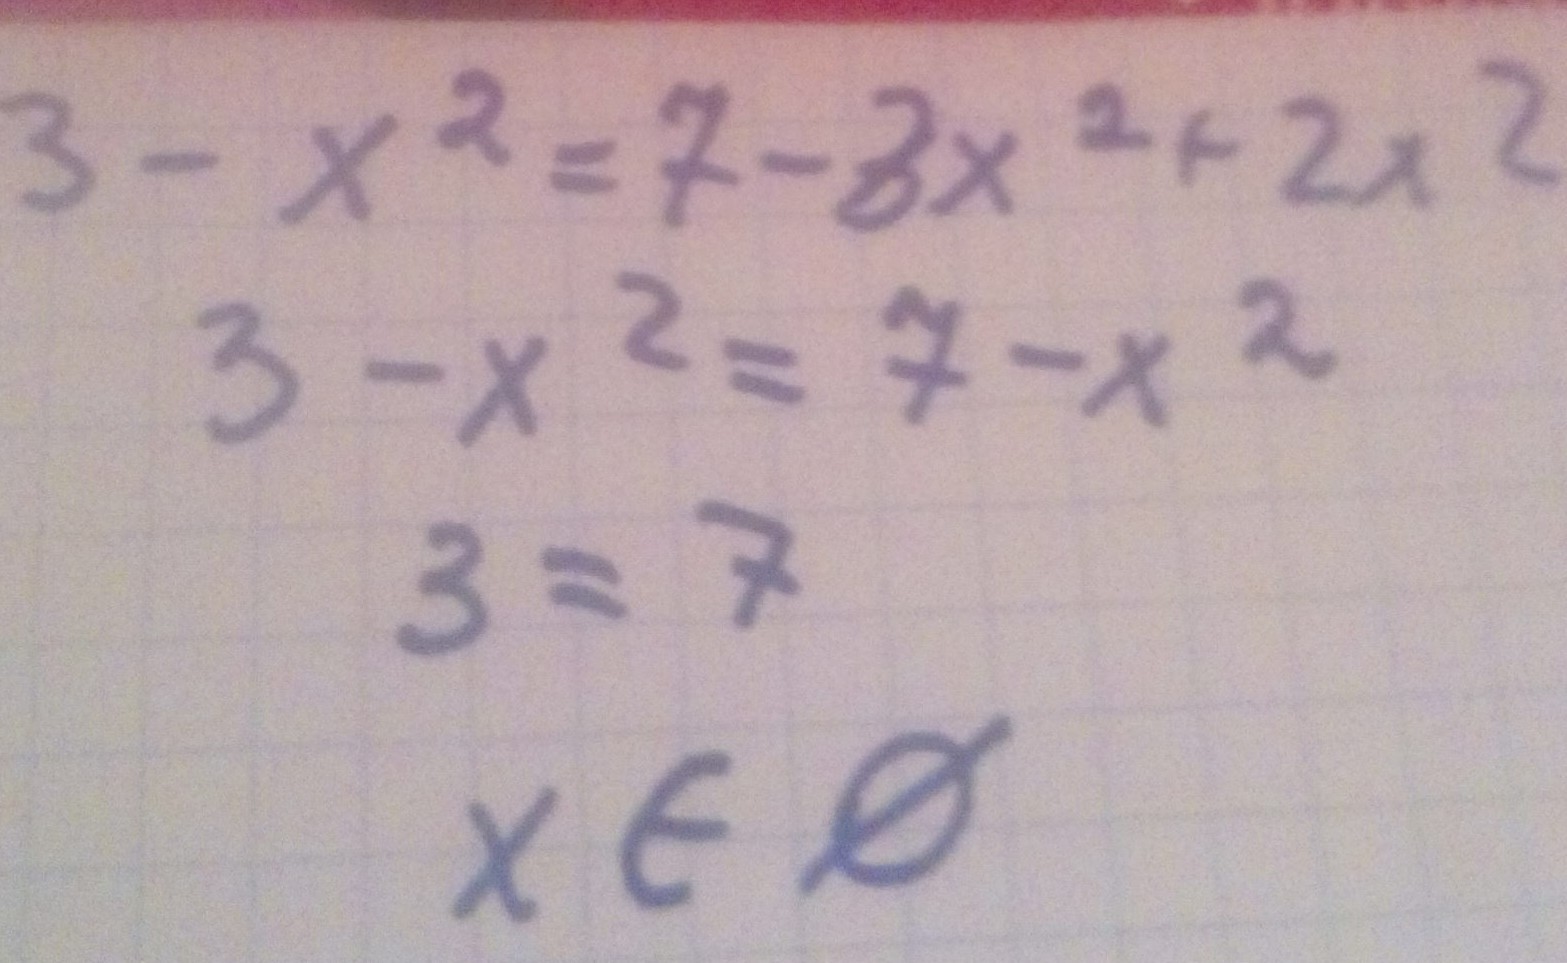 3 - x² = 7 - 3x² + 2x²
3 - x² = 7 - x²
3 = 7
x ∈ Ø